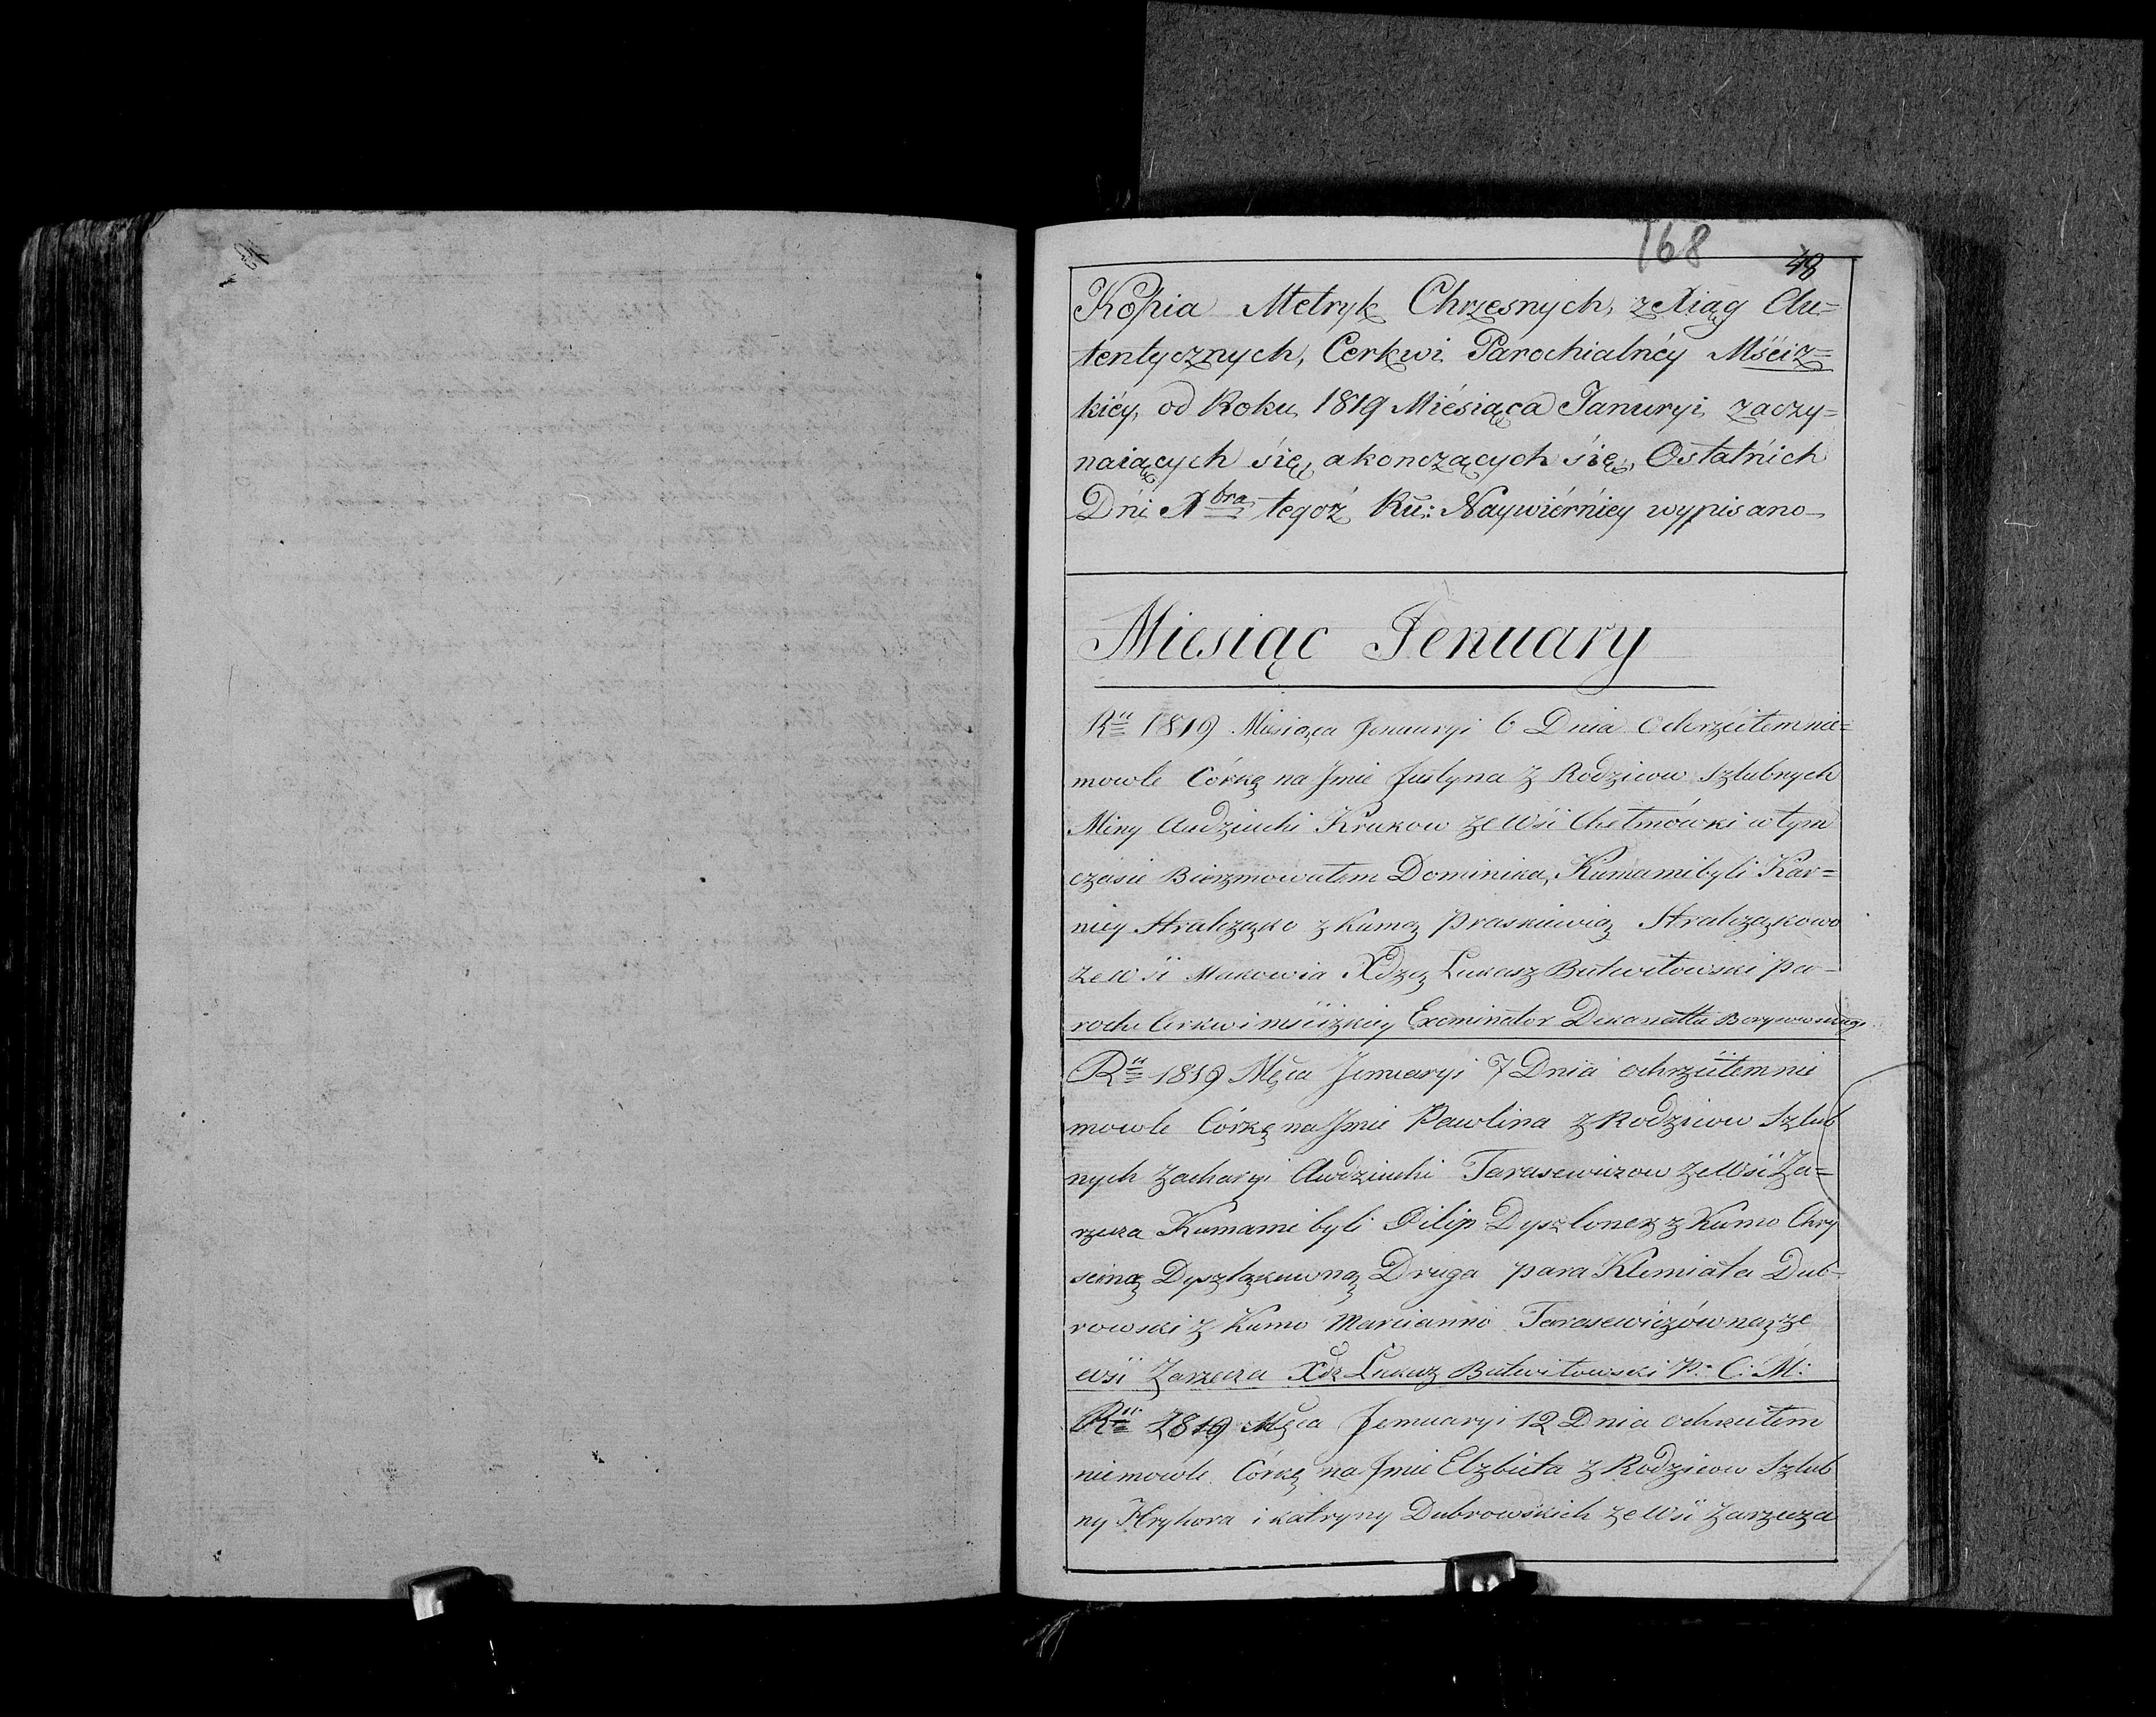 168
48
Kopia Metryk Chrzesnych, z Xiąg Au=
tentycznych, Cerkwi Parochialnéy Mściz=
kiéy, od Roku 1819 Miésiąca Januryi zaczy=
naiących się, a konczących się, Ostatńich
Dńi Xbra tegoż Ru: Naywiérńiey wypisano
Miesiąc Jenuary
Ru 1819 Miesiąca Jenuaryi 6 Dnia Ochrzcitem nie=
mowle Córkę na Jmie Justyna z Rodzicow Szlubnych
Miny Audziuchi Krukow ze Wsi Chełmówki w tym
czasie Bierzmowałem Dominika, Kumami byli Kar=
niey Stralczązko z Kumą Praskiewią Stralczązkowo
ze wsi Makowia Xdzą Lukasz Butwitowski pa-
roch Cerkwi mscizkiey Exeminator Dekanattu
Ru 1819 Męca Jenuaryi 7 Dnia ochrzcitem nie
mowle Córkę na Jmie Pawlina z Rodzicow Szlub
nych Zacharyi Awdziuchi Tarasewiczow ze Wsi Za=
rzecza Kumami byli Pilip Dyszlonek z Kumo Chry
sciną Dyszlązkuwną Druga para Klemiata Dub-
rowski z Kumo Marcianno Tarasewiczówną ze
wsi Zarzecza Xdz Lukasz Butwitowski P: C: M:
Ru 1819 Męca Jenuaryi 12 Dnia ochrzcitem
niemowle Córkę na Jmie Elzbieta z Rodzicow Szlub
ny Hryhora i katryny Dubrowskich ze Wsi Zarzecza